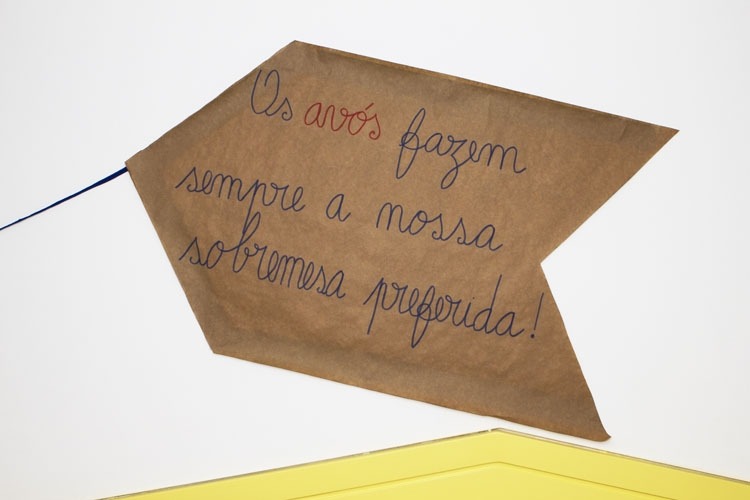 Os avós fazem
sempre a nossa
sobremesa preferida!